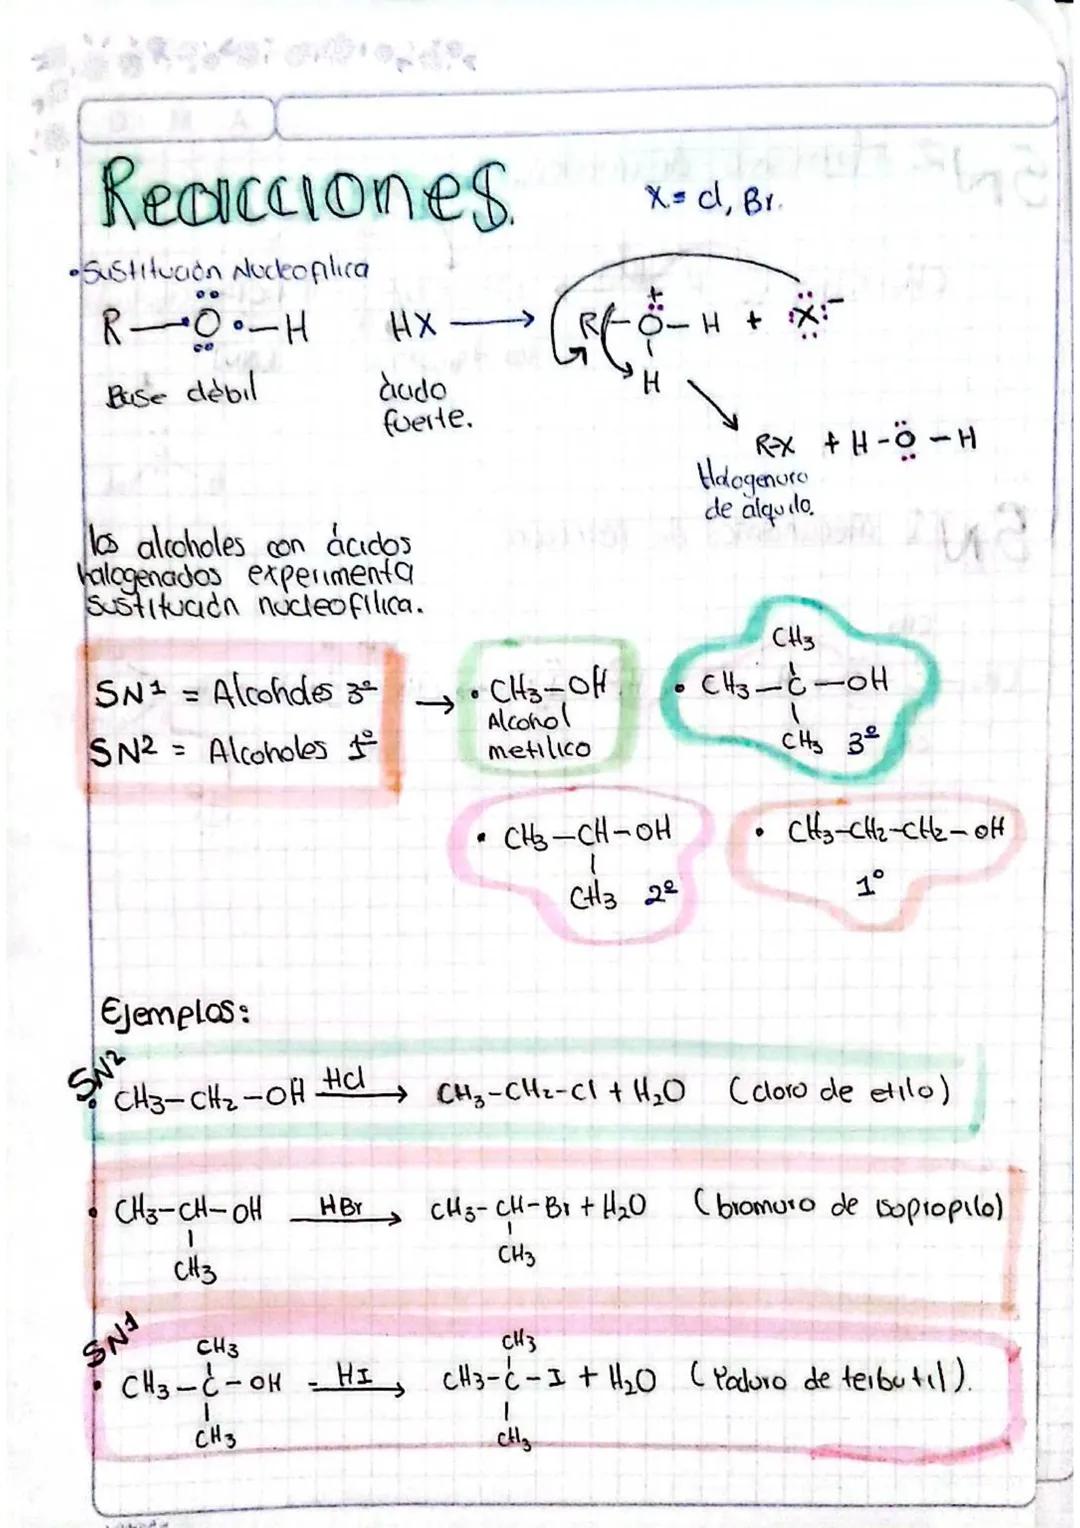 Reacciones.
X = Cl, Br.
• Sustitución Nucleofilica
R—O—H HX ⟶ R—O⁺—H + :X:⁻
H
Base débil
ácido
fuerte.
R-X + H-O-H
Halogenuro
de alquilo.
los alcoholes con ácidos
halogenados experimenta
sustitución nucleofilica.
SN1 = Alcoholes 3º
SN2 = Alcoholes 1º
→ • CH3-OH
Alcohol
metilico
CH3
• CH3-C-OH
CH3 3º
• CH3-CH-OH
CH3 2º
• CH3-CH2-CH2-OH
1º
Ejemplos:
SN2
• CH3-CH2-OH HCl ⟶ CH3-CH2-Cl + H2O (cloro de etilo)
• CH3-CH-OH HBr ⟶ CH3-CH-Br + H2O (bromuro de isopropilo)
CH3 CH3
SN1
CH3 CH3
• CH3-C-OH HI ⟶ CH3-C-I + H2O (Yoduro de terbutil).
CH3 CH3